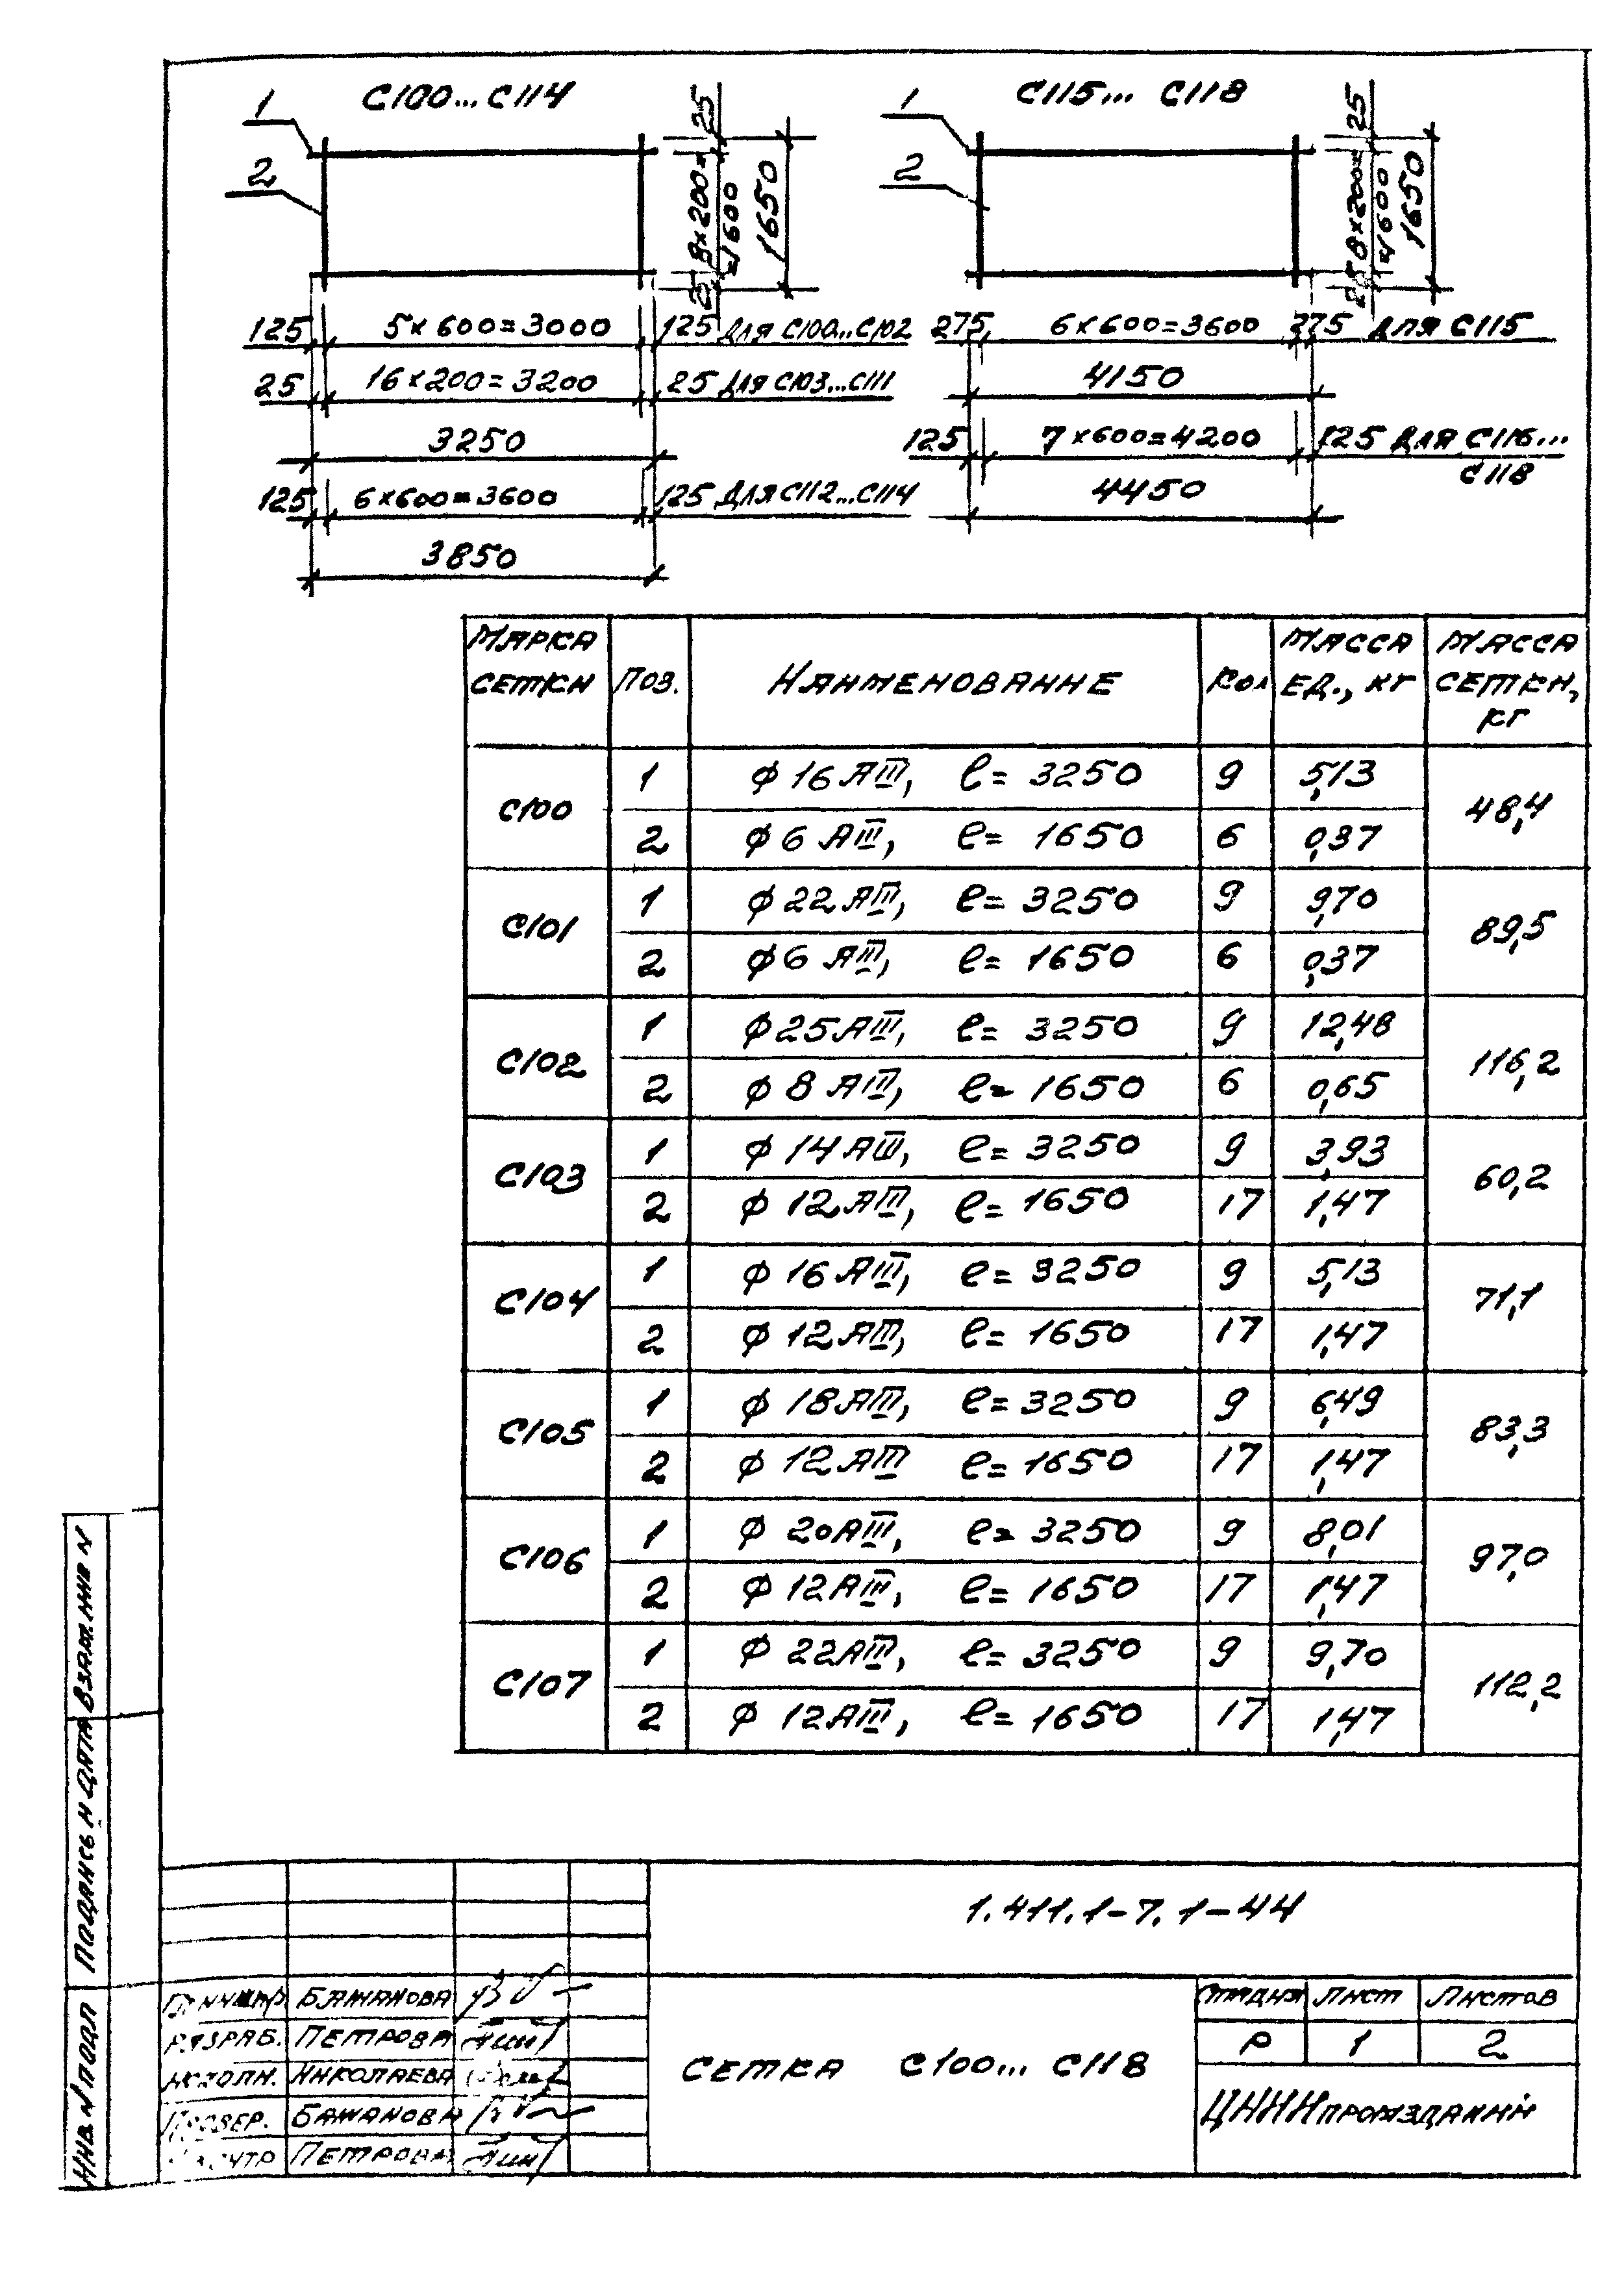 С100... С114
1
2
25
8×200=
=1600
25
1650
125 5×600=3000 125 для С100...С102
25 16×200=3200 25 для С103...С111
3250
125 6×600=3600 125 для С112...С114
3850
С115... С118
1
2
25
8×200=
=1600
25
1650
275 6×600=3600 275 для С115
4150
125 7×600=4200 125 для С116...
С118
4450
Марка сетки Поз. Наименование Кол Масса ед., кг Масса сетки, кг
С100 1 ϕ 16 АIII, ℓ= 3250 9 5,13 48,4
2 ϕ 6 АIII, ℓ= 1650 6 0,37
С101 1 ϕ 22 АIII, ℓ= 3250 9 9,70 89,5
2 ϕ 6 АIII, ℓ= 1650 6 0,37
С102 1 ϕ 25 АIII, ℓ= 3250 9 12,48 116,2
2 ϕ 8 АIII, ℓ= 1650 6 0,65
С103 1 ϕ 14 АIII, ℓ= 3250 9 3,93 60,2
2 ϕ 12 АIII, ℓ= 1650 17 1,47
С104 1 ϕ 16 АIII, ℓ= 3250 9 5,13 71,1
2 ϕ 12 АIII, ℓ= 1650 17 1,47
С105 1 ϕ 18 АIII, ℓ= 3250 9 6,49 83,3
2 ϕ 12 АIII ℓ= 1650 17 1,47
С106 1 ϕ 20 АIII, ℓ= 3250 9 8,01 97,0
2 ϕ 12 АIII, ℓ= 1650 17 1,47
С107 1 ϕ 22 АIII, ℓ= 3250 9 9,70 112,2
2 ϕ 12 АIII, ℓ= 1650 17 1,47
Взам. инв N
Подпись и дата
Инв N подл
1.411.1-7.1-44
Бажанова
Разраб. Петрова
Исполн. Николаева
Провер. Бажанова
Н.контр Петрова
Сетка С100... С118
Стадия Лист Листов
Р 1 2
ЦНИИпромзданий